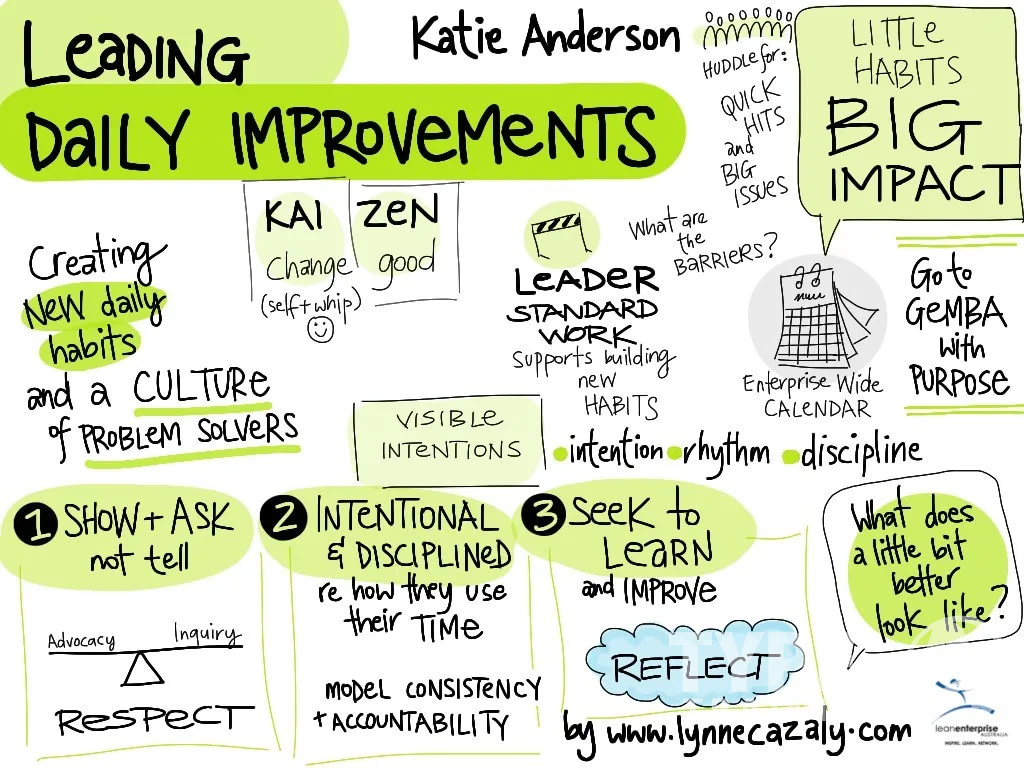 Leading
Daily Improvements
Katie Anderson
Huddle for:
Quick
Hits
and
Big
Issues
Little
Habits
Big
Impact
Creating
New daily
habits
and a Culture
of Problem Solvers
Kai
Change
(self + whip)
Zen
good
Leader
Standard
Work
Supports building
new
Habits
What are
the
Barriers?
Enterprise Wide
Calendar
Go to
Gemba
with
Purpose
Visible
Intentions
• intention • rhythm • discipline
1 Show + Ask
not tell
Advocacy Inquiry
Respect
2 Intentional
& Disciplined
re how they use
their Time
Model Consistency
+ Accountability
3 Seek to
Learn
and Improve
Reflect
What does
a little bit
better
look like?
by www.lynnecazaly.com
leanenterprise
AUSTRALIA
INSPIRE. LEARN. NETWORK.